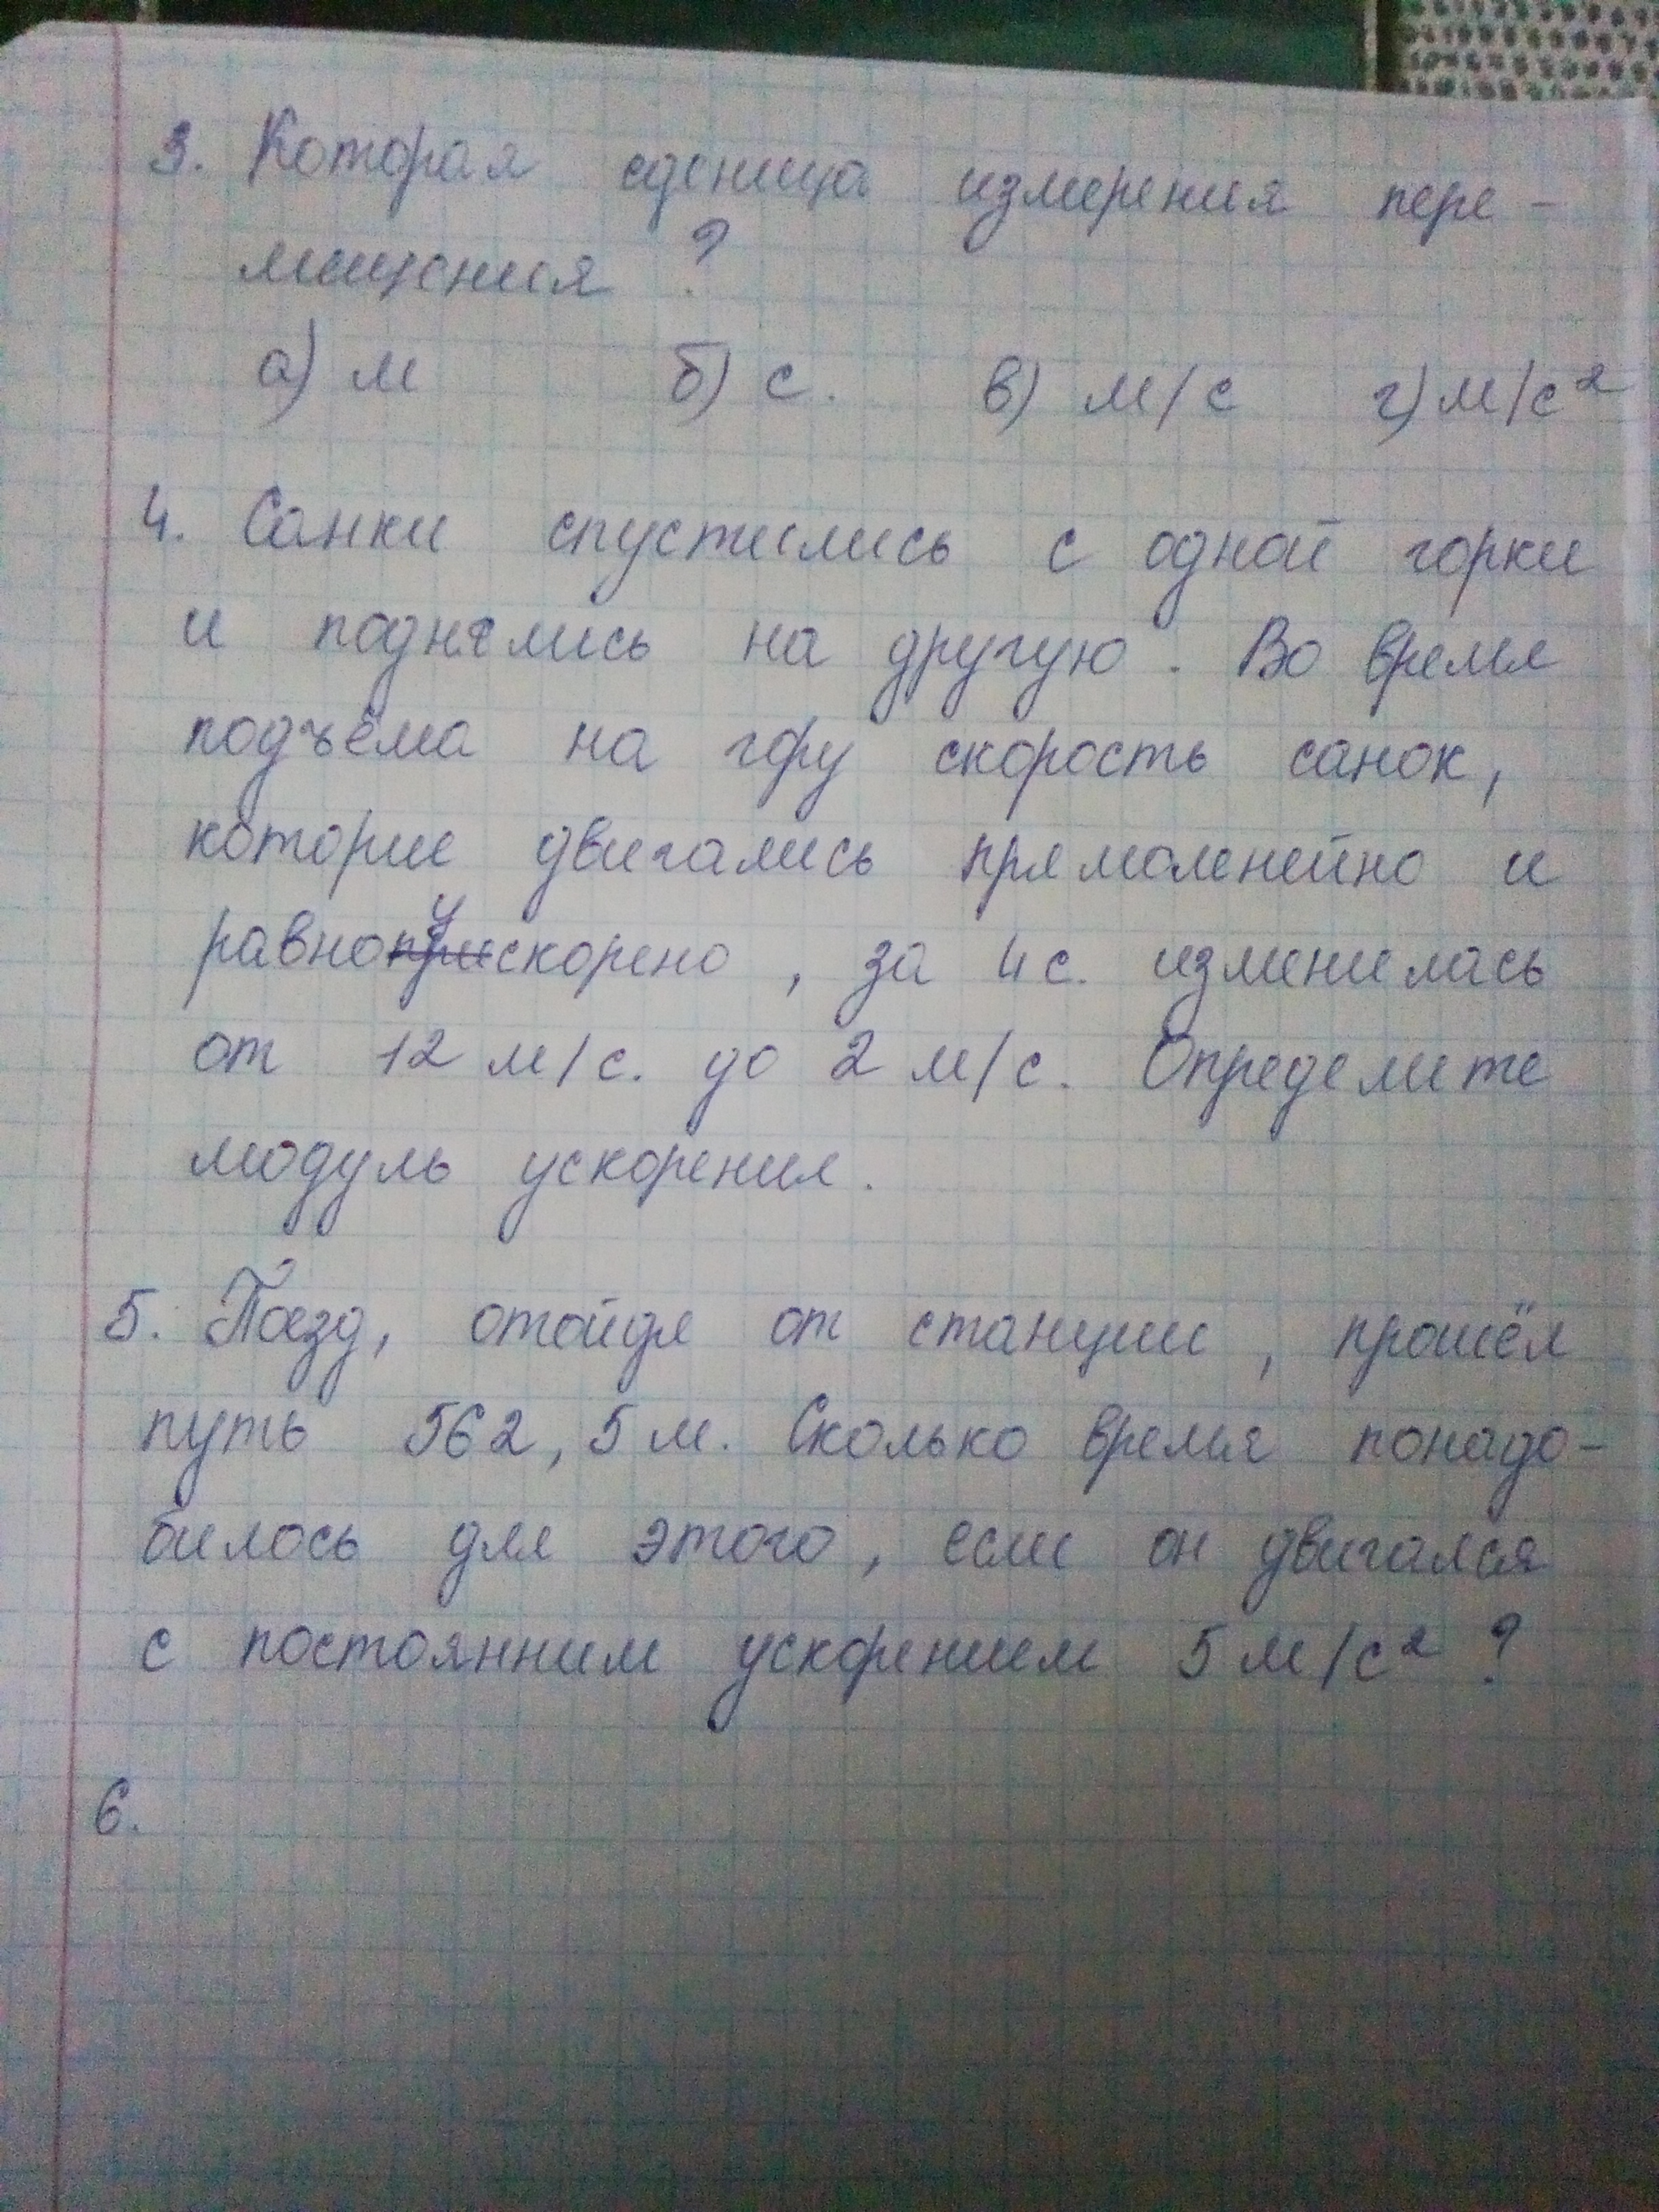 3. Которая еденица измерения пере-
мищения ?
а) м б) с. в) м/с г) м/с²
4. Санки спустились с одной горки
и поднялись на другую. Во время
подъёма на гору скорость санок,
которие двигались прямоленейно и
равноускорено, за 4с. изменилась
от 12 м/с. до 2 м/с. Определите
модуль ускорения.
5. Поезд, отойдя от станции, прошёл
путь 562,5м. Сколько время понадо-
билось для этого, если он двигался
с постоянним ускорением 5м/с² ?
6.